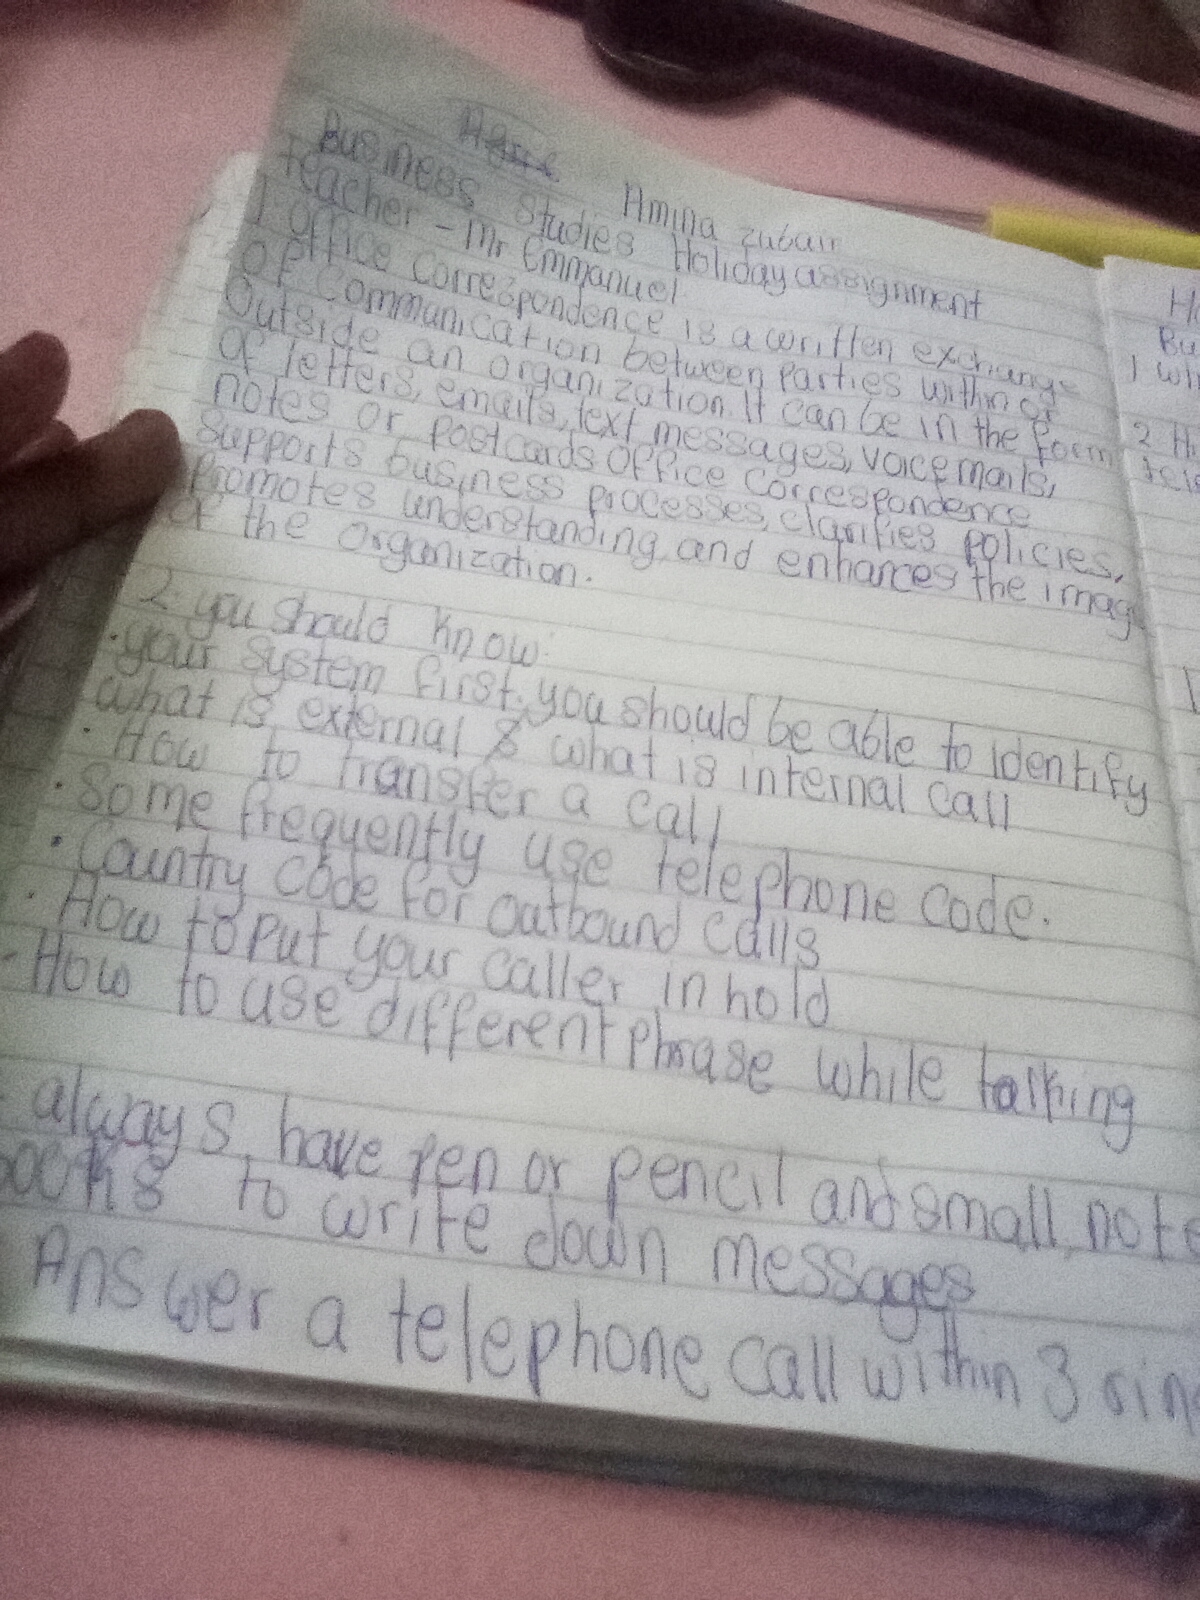 Amina zubair
Business Studies Holiday assignment
Teacher - Mr Emmanuel
1 Office correspondence is a written exchange
of communication between parties within or
outside an organization. It can be in the form
of letters, emails, text messages, voicemails,
notes or postcards Office correspondence
supports business processes, clarifies policies,
promotes understanding, and enhances the imag
of the organization.
2 you should know:
• your system first, you should be able to identify
what is external & what is internal call
• How to transfer a call
• Some frequently use telephone code.
• Country code for outbound calls
• How to put your caller in hold
- How to use different phrase while talking
always have pen or pencil and small note
books to write down messages
Answer a telephone call within 3 rin
Bu
1 wh
2 H
tele